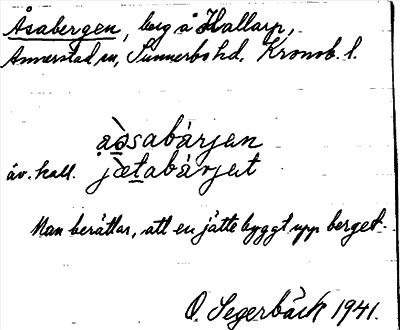 Åsabergen, berg å Hallarp,
Annerstad sn, Sunnerbo hd, Kronob. l.
aòsabárjen
äv. kall. jætabárjet
Man berättar, att en jätte byggt upp berget.
O. Segerbäck 1941.